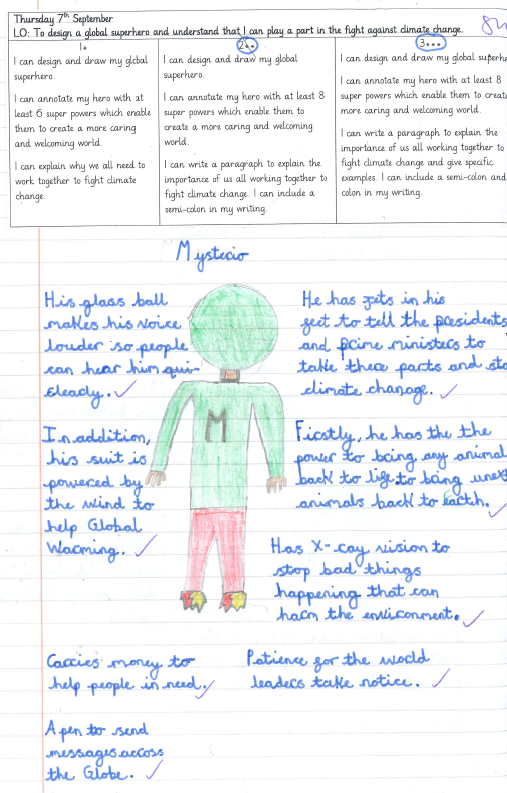 Thursday 7th September
LO: To design a global superhero and understand that I can play a part in the fight against climate change.
1•
I can design and draw my global
superhero.
I can annotate my hero with at
least 6 super powers which enable
them to create a more caring
and welcoming world.
I can explain why we all need to
work together to fight climate
change.
2••
I can design and draw my global
superhero.
I can annotate my hero with at least 8
super powers which enable them to
create a more caring and welcoming
world.
I can write a paragraph to explain the
importance of us all working together to
fight climate change. I can include a
semi-colon in my writing.
3•••
I can design and draw my global superhe
I can annotate my hero with at least 8
super powers which enable them to creat
more caring and welcoming world.
I can write a paragraph to explain the
importance of us all working together to
fight climate change and give specific
examples. I can include a semi-colon and
colon in my writing.
Mysterio
His glass ball
makes his voice
louder so people
can hear him qui-
cleady.
He has jets in his
feet to tell the presidents
and prime ministers to
take there parts and sto
climate chanage.
M
In addition,
his suit is
powered by
the wind to
help Global
Warming.
Firstly, he has the the
power to bring any animal
back to life to bring unex
animals back to Earth.
Has X-ray vision to
stop bad things
happening that can
harm the environment.
Carries money to
help people in need.
Patience for the world
leaders take notice.
A pen to send
messages across
the Globe.